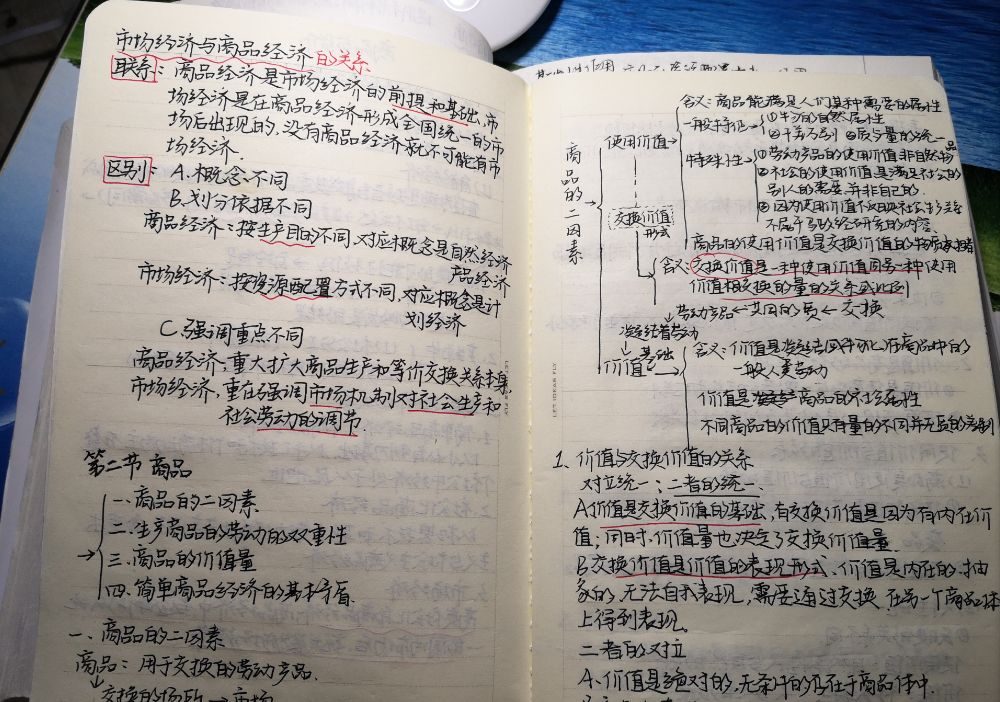 市场经济与商品经济的关系
联系：商品经济是市场经济的前提和基础，市
场经济是在商品经济形成全国统一的市
场后出现的，没有商品经济就不可能有市
场经济．
区别：A.概念不同
B.划分依据不同
商品经济：按生产目的不同，对应概念是自然经济
产品经济
市场经济：按资源配置方式不同，对应概念是计
划经济
C.强调重点不同
商品经济，重大扩大商品生产和等价交换关系
市场经济，重在强调市场机制对社会生产和
社会劳动的调节．
第二节 商品
一.商品的二因素
二.生产商品的劳动的双重性
三.商品的价值量
四.简单商品经济的基本矛盾．
一、商品的二因素
商品：用于交换的劳动产品．
交换的场所→市场
LET IDEAS FLY
商品的二因素
使用价值
含义：商品能满足人们某种需要的属性
一般特征
①
自然属性
②千差万别 ③质与量的统一
特殊性
①劳动产品的使用价值非自然物品
②社会的使用价值是满足社会的
别人的需要并非自己的．
③因为使用价值不反映社会生产关系
不属于
研究的内容．
商品的使用价值是交换价值的物质承担者
交换价值
形式
含义：交换价值是一种使用价值同另一种使用
价值相交换的量的关系或比例
劳动产品←共同的质←交换
凝结着劳动
基础
价值
含义：价值是凝结
在商品中的
一般人类劳动
价值是
商品的社会属性
不同商品的价值只有量的不同并无质的差别
1、价值与交换价值的关系
对立统一、二者的统一
A价值是交换价值的基础，有交换价值是因为有内在价
值；同时，价值量也决定了交换价值量．
B交换价值是价值的表现形式、价值是内在的、抽
象的，无法自我表现，需要通过交换，在另一个商品体
上得到表现。
二者的对立
A、价值是绝对的，无条件的存在于商品体中．